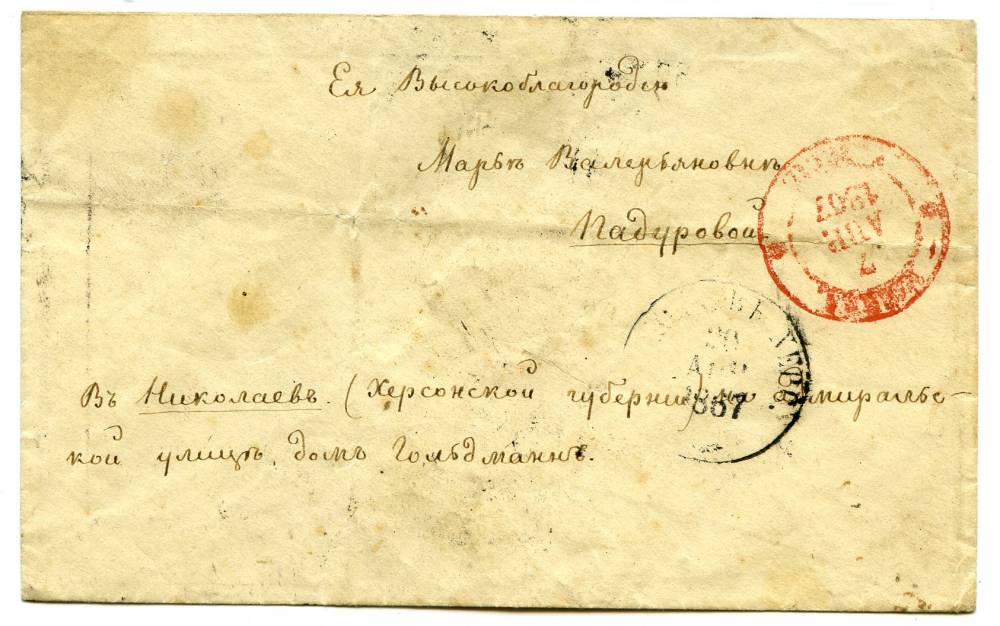 Ея Высокоблагородію
Марьѣ Валерьяновнѣ
Падуровой
Въ Николаевъ. (Херсонской губерніи) на
кой улицѣ, домъ Гольдманнъ.
7
АПР
1867
АПР
1867
ХЕРС.